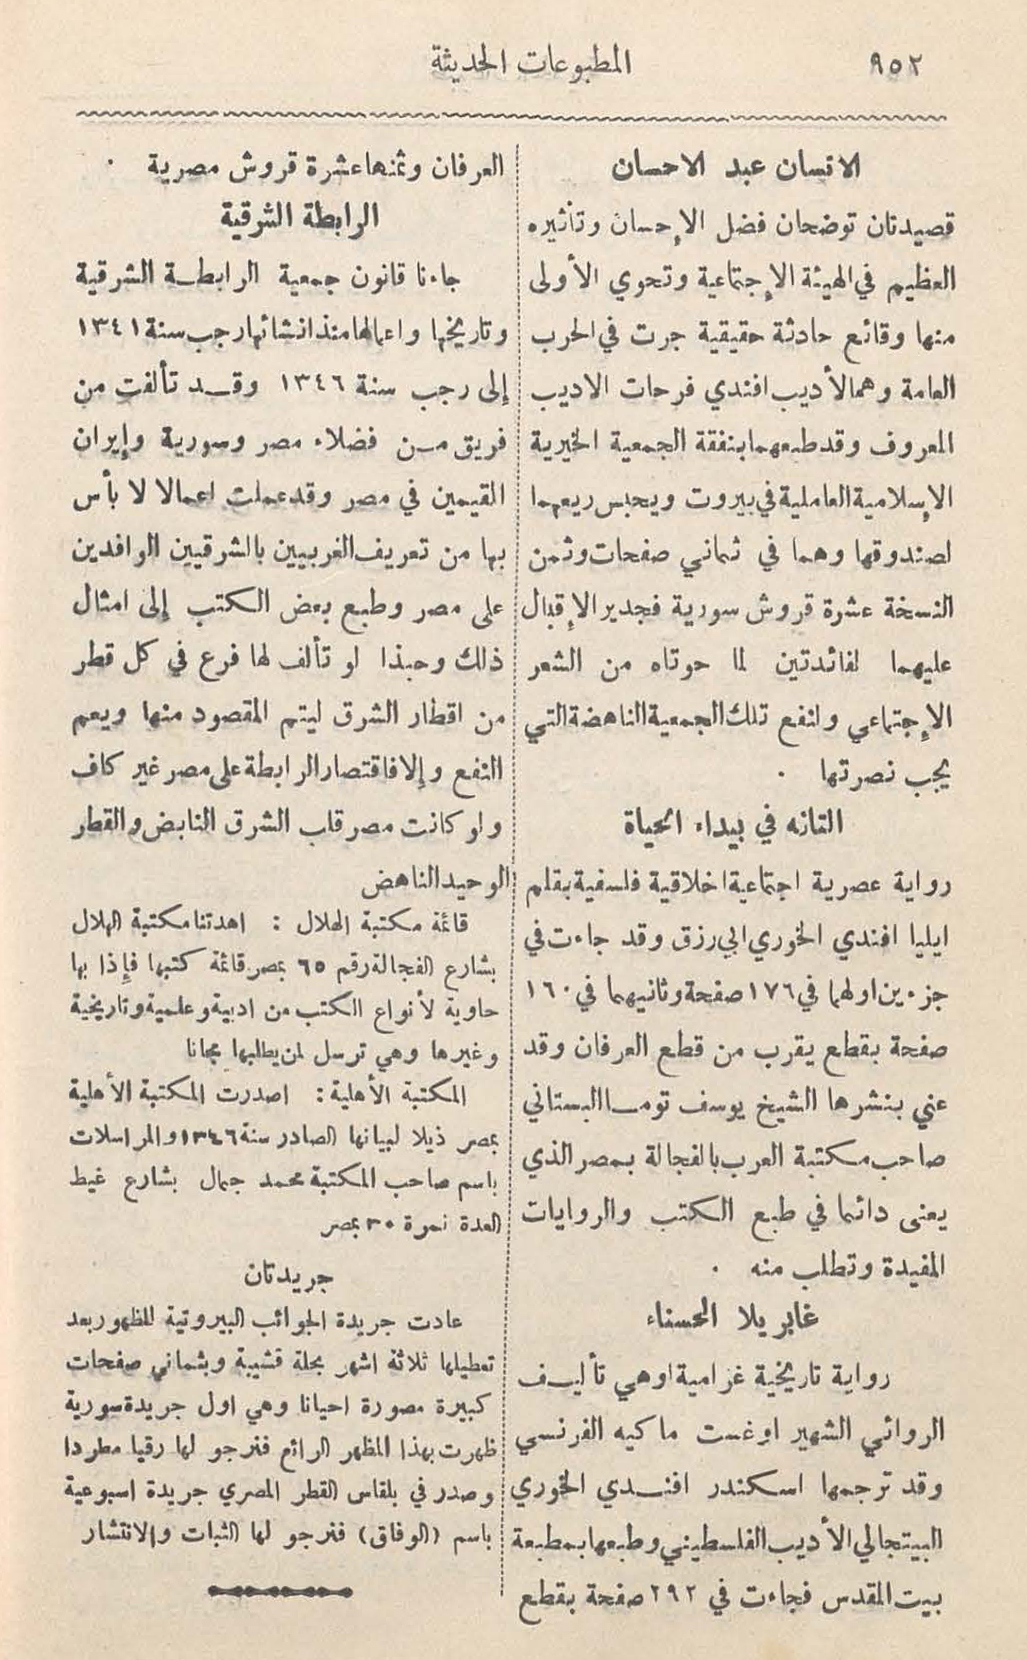 ٩٥٢
المطبوعات الحديثة
الانسان عبد الاحسان
قصيدتان توضحان فضل الإحسان وتأثيره
العظيم في الهيئة الإجتماعية وتحوي الأولى
منها وقائع حادثة حقيقية جرت في الحرب
العامة وهما لأديب افندي فرحات الاديب
المعروف وقد طبعهما بنفقة الجمعية الخيرية
الإسلامية العاملية في بيروت ويحبس ريعهما
لصندوقها وهما في ثماني صفحات وثمن
النسخة عشرة قروش سورية فجدير الإقبال
عليهما لفائدتين لما حوتاه من الشعر
الإجتماعي ولنفع تلك الجمعية الناهضة التي
يجب نصرتها .
التائه في بيداء الحياة
رواية عصرية اجتماعية اخلاقية فلسفية بقلم
ايليا افندي الخوري ابي رزق وقد جاءت في
جزءين اولهما في ١٧٦ صفحة وثانيهما في ١٦٠
صفحة بقطع يقرب من قطع العرفان وقد
عني بنشرها الشيخ يوسف توما البستاني
صاحب مكتبة العرب بالفجالة بمصر الذي
يعنى دائما في طبع الكتب والروايات
المفيدة وتطلب منه .
غابريلا الحسناء
رواية تاريخية غرامية اوهي تأليف
الروائي الشهير اوغست ماكيه الفرنسي
وقد ترجمها اسكندر افندي الخوري
البيتجالي الأديب الفلسطيني وطبعها بمطبعة
بيت المقدس فجاءت في ٢٩٢ صفحة بقطع
العرفان وثمنها عشرة قروش مصرية .
الرابطة الشرقية
جاءنا قانون جمعية الرابطة الشرقية
وتاريخها واعمالها منذ انشائها رجب سنة ١٣٤١
إلى رجب سنة ١٣٤٦ وقد تألفت من
فريق من فضلاء مصر وسورية وإيران
المقيمين في مصر وقد عملت اعمالا لا بأس
بها من تعريف الغربيين بالشرقيين الوافدين
على مصر وطبع بعض الكتب إلى امثال
ذلك وحبذا لو تألف لها فرع في كل قطر
من اقطار الشرق ليتم المقصود منها ويعم
النفع وإلا فاقتصار الرابطة على مصر غير كاف
ولو كانت مصر قلب الشرق النابض والقطر
الوحيد الناهض
قائمة مكتبة الهلال : اهدتنا مكتبة الهلال
بشارع الفجالة رقم ٦٥ بمصر قائمة كتبها فإذا بها
حاوية لأنواع الكتب من ادبية وعلمية وتاريخية
وغيرها وهي ترسل لمن يطلبها مجانا
المكتبة الأهلية : اصدرت المكتبة الأهلية
بمصر ذيلا لبيانها الصادر سنة ١٣٤٦ والمراسلات
باسم صاحب المكتبة محمد جمال بشارع غيط
العدة نمرة ٣٠ بمصر
جريدتان
عادت جريدة الجوائب البيروتية للظهور بعد
تعطيلها ثلاثة اشهر بحلة قشيبة وبثماني صفحات
كبيرة مصورة احيانا وهي اول جريدة سورية
ظهرت بهذا المظهر الرائع فنرجو لها رقيا مطردا
وصدر في بلقاس القطر المصري جريدة اسبوعية
باسم (الوفاق) فنرجو لها الثبات والانتشار